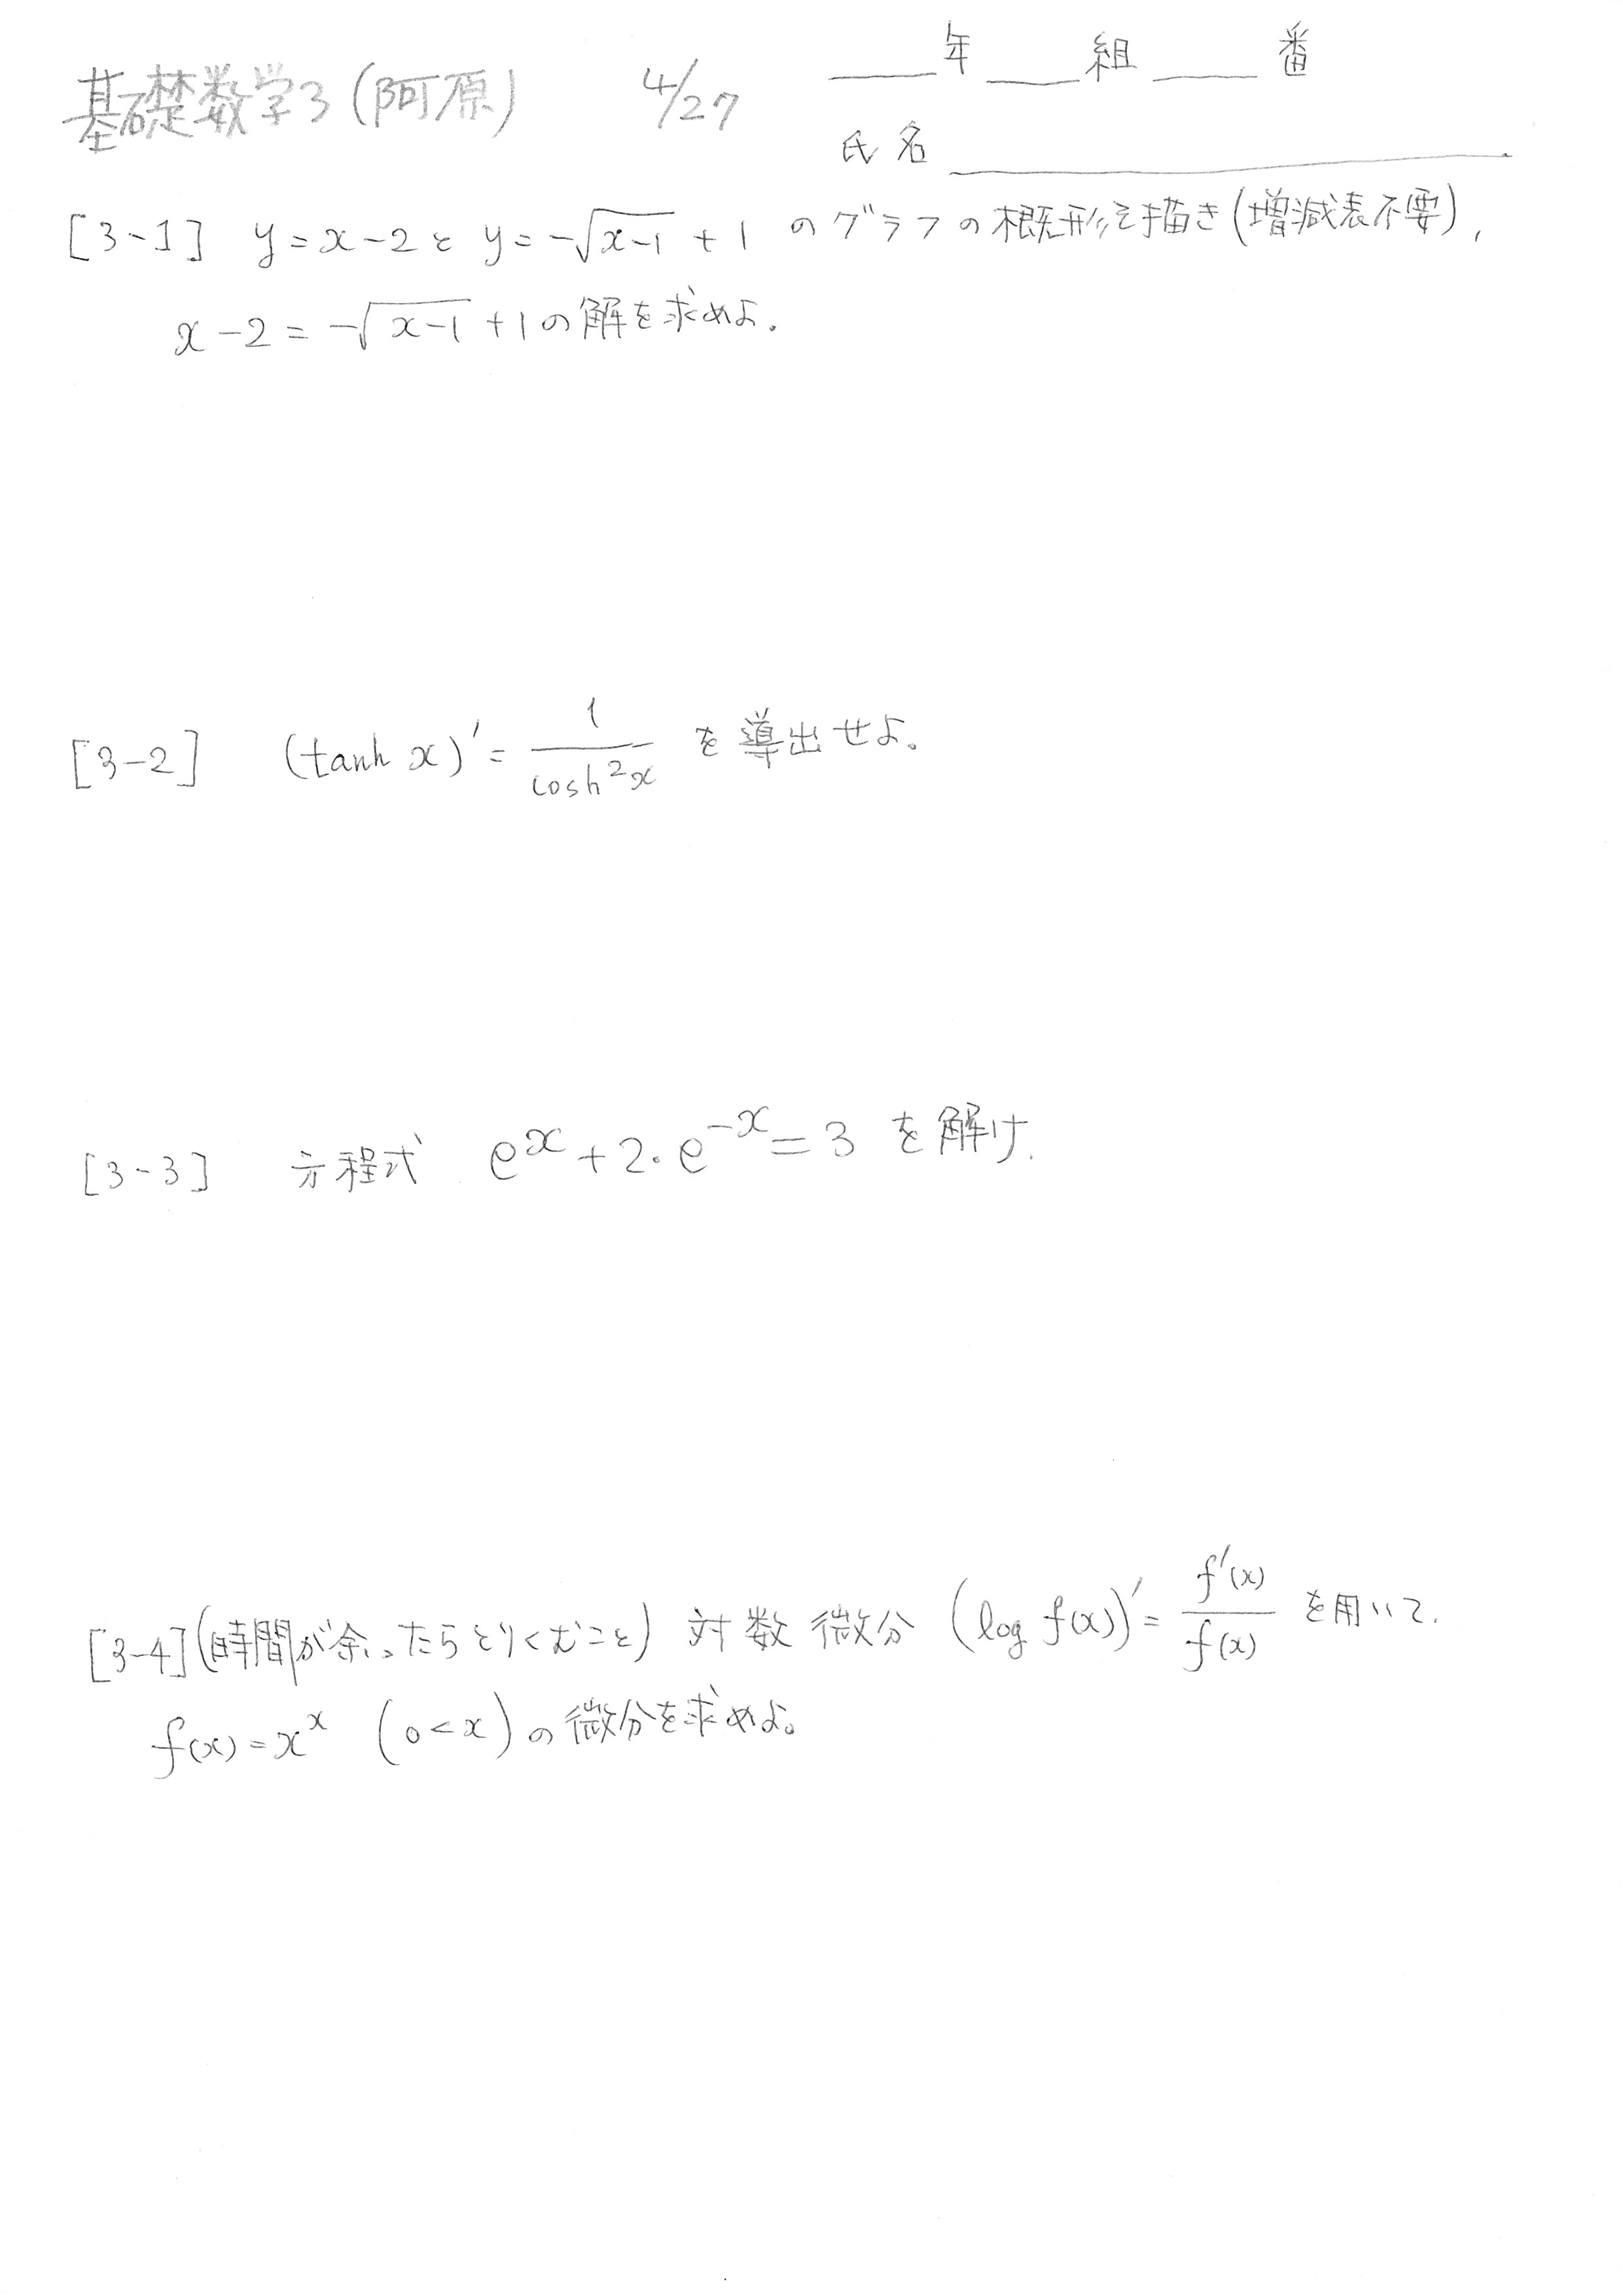 基礎数学3(阿原) 4/27
___年___組___番
氏名___
[3-1] y=x-2とy=-√(x-1)+1のグラフの概形を描き(増減表不要),
x-2=-√(x-1)+1の解を求めよ.
[3-2] (tanh x)′=1/cosh²x を導出せよ。
[3-3] 方程式 e^x+2・e^-x=3 を解け.
[3-4](時間が余ったらとりくむこと) 対数微分 (log f(x))′=f′(x)/f(x) を用いて.
f(x)=x^x (0<x)の微分を求めよ。